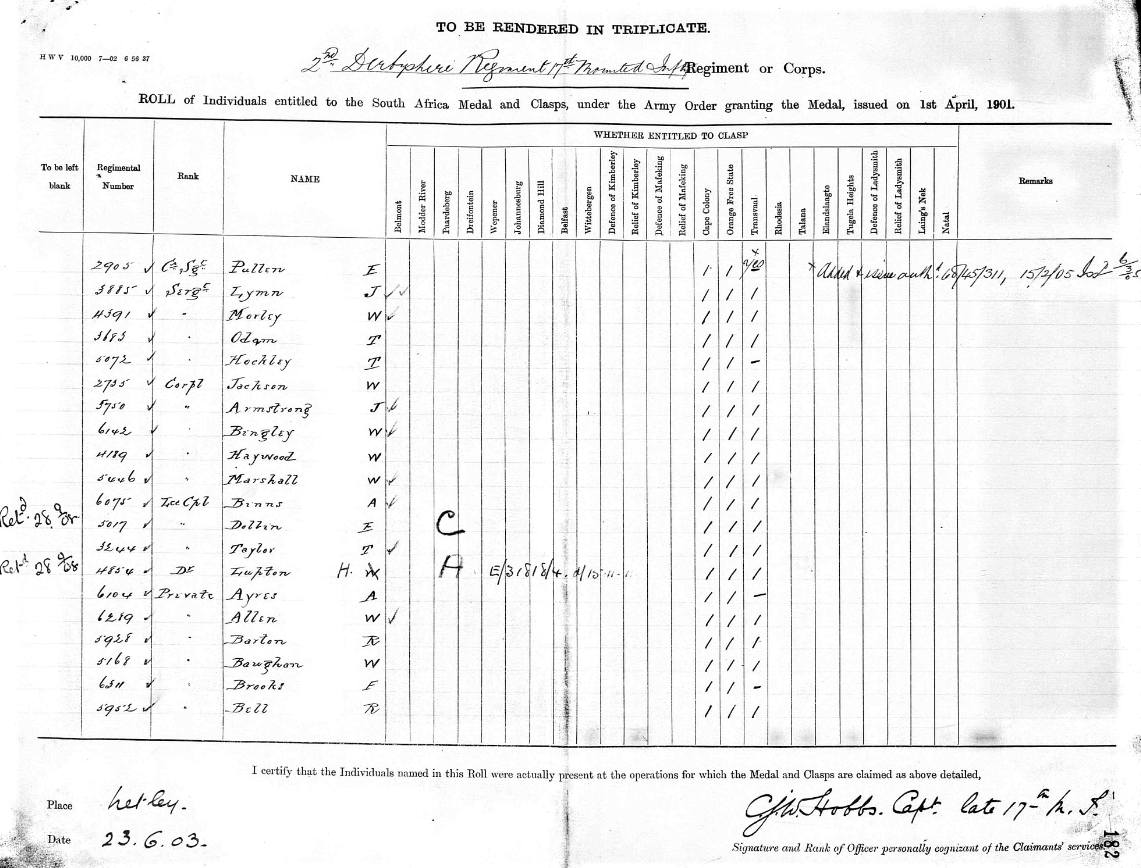 TO BE RENDERED IN TRIPLICATE.
H W V 10,000 7—02 6 56 37
2nd Derbyshire Regiment 17th Mounted Infy Regiment or Corps.
ROLL of Individuals entitled to the South Africa Medal and Clasps, under the Army Order granting the Medal, issued on 1st April, 1901.
WHETHER ENTITLED TO CLASP
To be left blank
Regimental Number
Rank
NAME
Belmont
Modder River
Paardeberg
Dreifontein
Wepener
Johannesburg
Diamond Hill
Belfast
Wittebergen
Defence of Kimberley
Relief of Kimberley
Defence of Mafeking
Relief of Mafeking
Cape Colony
Orange Free State
Transvaal
Rhodesia
Talana
Elandslaagte
Tugela Heights
Defence of Ladysmith
Relief of Ladysmith
Laing's Nek
Natal
Remarks
2905 ✓ Cr Sgt Pullen E / / x yes x Added & issue auth: 68/45/311, 15/2/05
3885 ✓ Sergt Lymn J ✓✓ / / /
4391 ✓ " Morley W ✓ / / /
3683 ✓ " Odam T / / /
5072 ✓ " Hockley T / / –
2735 ✓ Corpl Jackson W / / /
5750 ✓ " Armstrong J ✓ / / /
6142 ✓ " Bingley W ✓ / / /
4189 ✓ " Haywood W / / /
5446 ✓ " Marshall W ✓ / / /
6075 ✓ Lce Cpl Binns A ✓ / / /
Retd 28/9/08 5017 ✓ " Dollin E C / / /
3244 ✓ " Taylor T ✓ / / /
Retd 28/9/08 4854 ✓ Do Lupton H. W A E/31818/4. / / /
6104 ✓ Private Ayres A / / –
6289 ✓ " Allen W ✓ / / /
5928 ✓ " Barton R / / /
5168 ✓ " Baughan W / / /
6311 ✓ " Brooks F / / –
5952 ✓ " Bell R / / /
I certify that the Individuals named in this Roll were actually present at the operations for which the Medal and Clasps are claimed as above detailed,
Place Netley.
Date 23.6.03.
C.J.W. Hobbs. Capt. late 17th M. I.
Signature and Rank of Officer personally cognizant of the Claimants' services.
182